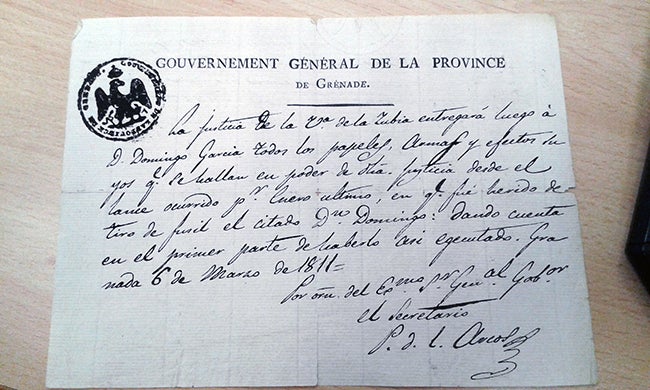 GOUVERNEMENT GÉNÉRAL DE LA PROVINCE
DE GRENADE.
La justicia de la V.a de la Zubia entregará luego à
D. Domingo Garcia todos los papeles, Armas y efectos su
yos q.e se hallan en poder de dha. justicia desde el
lance ocurrido p.r Enero ultimo, en q.e fué herido de
tiro de fusil el citado D.n Domingo: dando cuenta
en el primer parte de haberlo asi egecutado. Gra
nada 6 de Marzo de 1811=
Por orn. del Exmo Sr. Gen.al Gob.or
el Secretario
P. d. l. Arcos